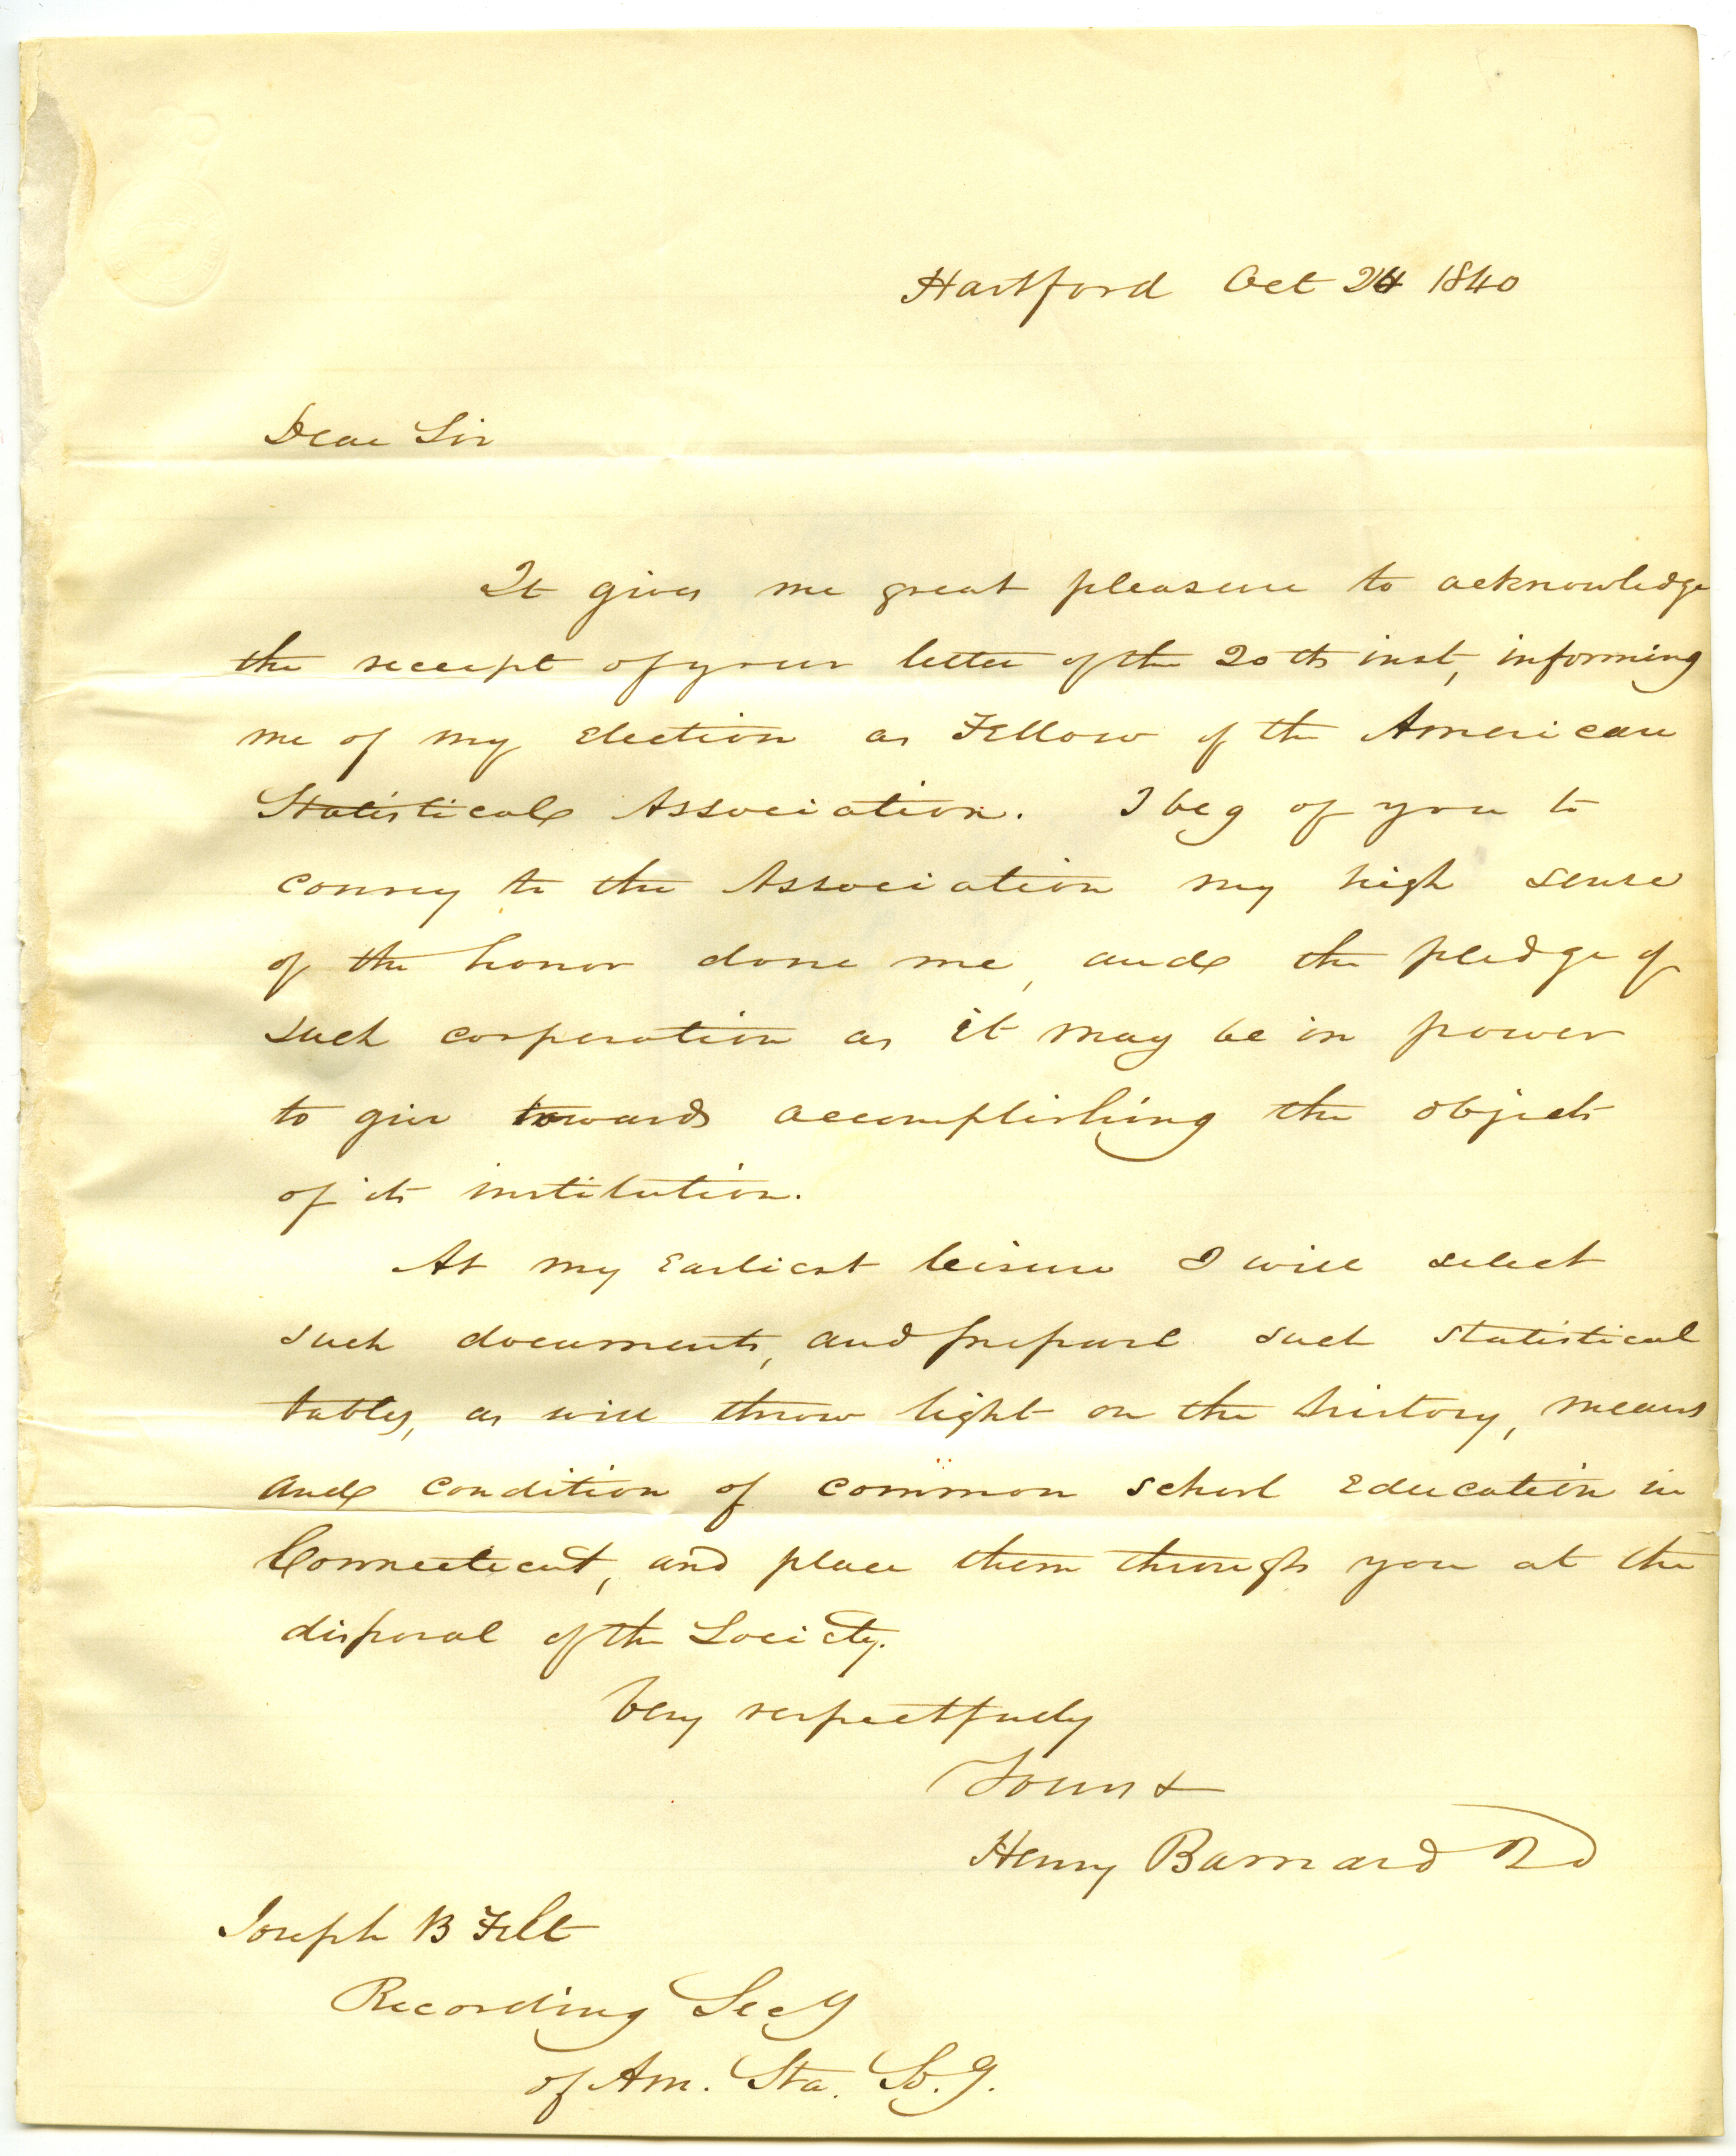 Hartford Oct 24 1840
Dear Sir
It gives me great pleasure to acknowledge
the receipt of your letter of the 20th inst, informing
me of my Election as Fellow of the American
Statistical Association. I beg of you to
convey to the Association my high sense
of the honor done me, and the pledge of
such corperation as it may be in power
to give towards accomplishing the objects
of its institution.
At my Earliest leisure I will select
such documents, and prepare such statistical
tables, as will throw light on the history, means
and condition of common school Education in
Connecticut, and place them through you at the
disposal of the Society.
Very respectfully
Yours &
Henry Barnard 2d
Joseph B Felt
Recording Secy
of Am. Sta. So.y.